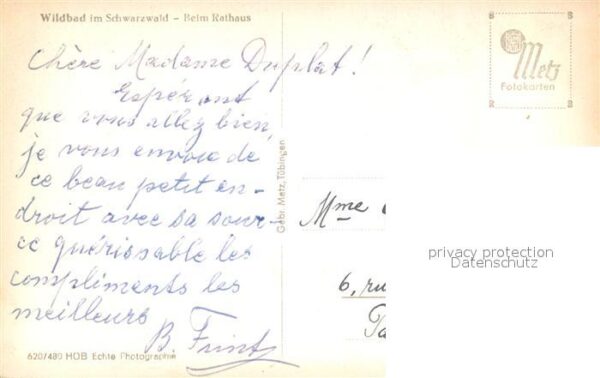 Wildbad im Schwarzwald – Beim Rathaus
Metz
Fotokarten
Chère Madame Duplat!
Espérant
que vous allez bien,
je vous envoie de
ce beau petit en-
droit avec sa sour-
ce guérissable les
compliments les
meilleurs
B.
620/480 HOB Echte Photographie
Gebr. Metz, Tübingen
Mme
6, ru
privacy protection
Datenschutz